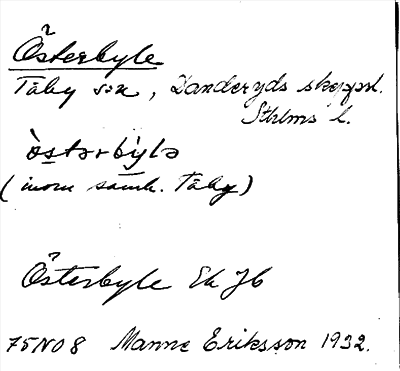 Österbyle
Täby sn, Danderyds skeppsl.
Sthlms l.
ò̀stərbỳlə
(inom samh. Täby)
Österbyle Ek Jb
75NO8 Manne Eriksson 1932.